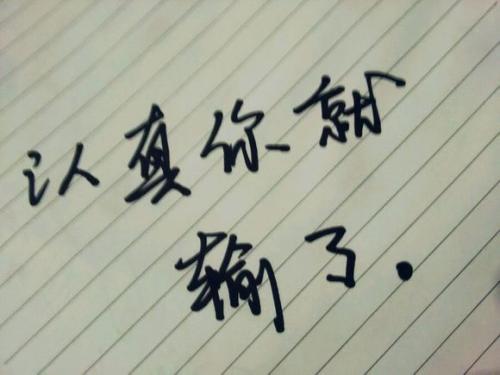 认真你就
输了.